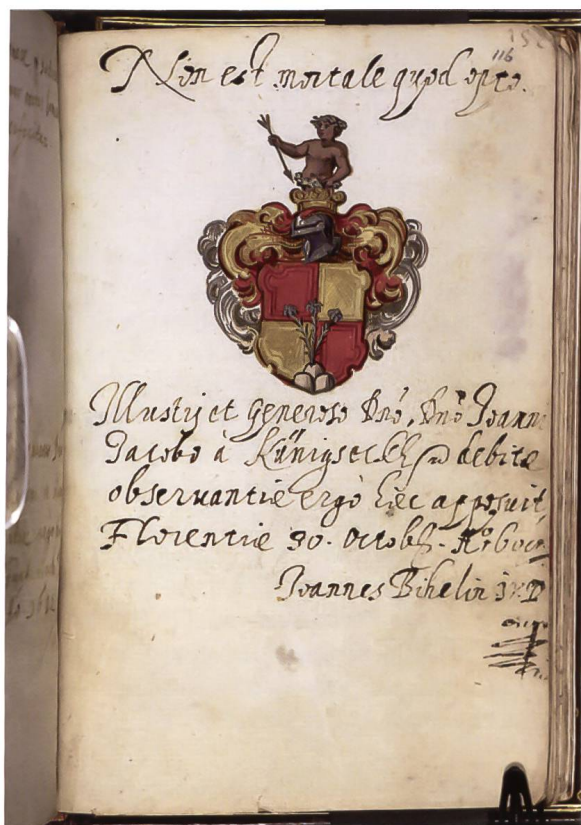 116
Non est mortale quod opto.
Illustri et generoso Dnō, Dnō Joann
Jacobo à Künigseckh debitæ
obseruantiæ ergò hæc apposuit
Florentiæ 30. Octob.
Joannes Bihelin